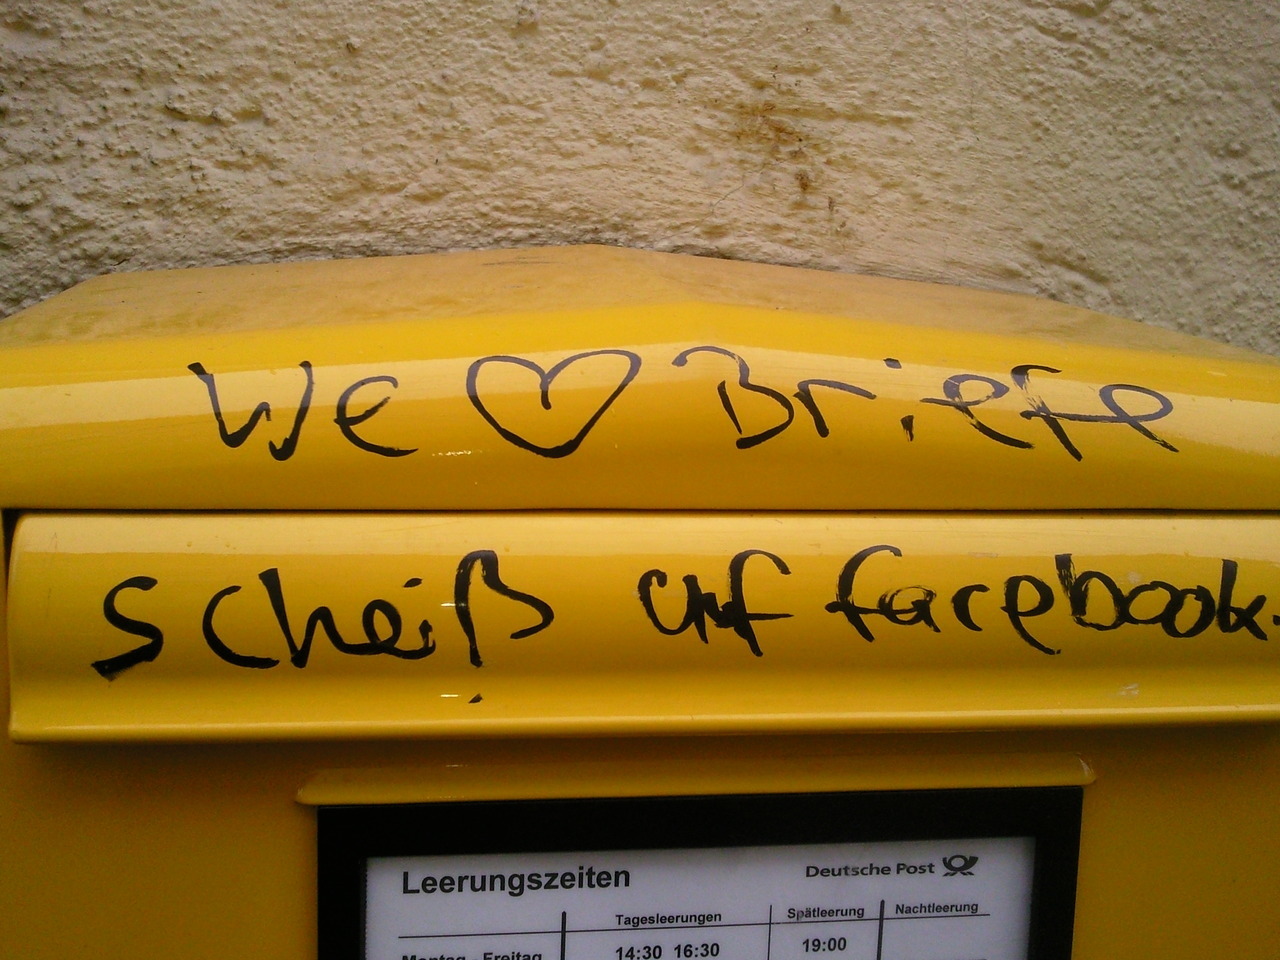 We ♡ Briefe
Scheiß auf facebook.
Leerungszeiten
Deutsche Post
Tagesleerungen Spätleerung Nachtleerung
Montag - Freitag 14:30 16:30 19:00